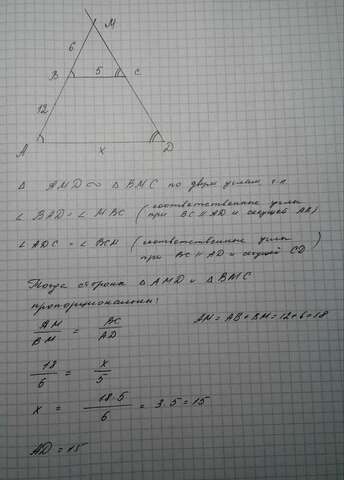 M
6
B 5 C
12
A x D
Δ AMD ∞ Δ BMC по двум углам т.к
∠ BAD = ∠ MBC (соответственные углы
при BC ∥ AD и секущей AB)
∠ ADC = ∠ BCM (соответственные углы
при BC ∥ AD и секущей CD)
Тогда стороны Δ AMD и Δ BMC
пропорциональны:
AM/BM = BC/AD AM = AB + BM = 12 + 6 = 18
18/6 = x/5
x = 18·5/6 = 3·5 = 15
AD = 15